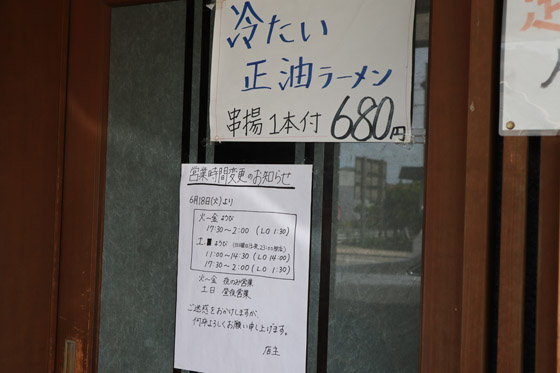 冷たい
正油ラーメン
串揚1本付 680円
営業時間変更のお知らせ
6月18日(火)より
火〜金 ようび
17:30〜2:00 (LO 1:30)
土 ようび
11:00〜14:30 (LO 14:00)
17:30〜2:00 (LO 1:30)
火〜金 夜のみ営業
土日 昼夜営業
ご迷惑をおかけしますが
何卒よろしくお願い申し上げます。
店主